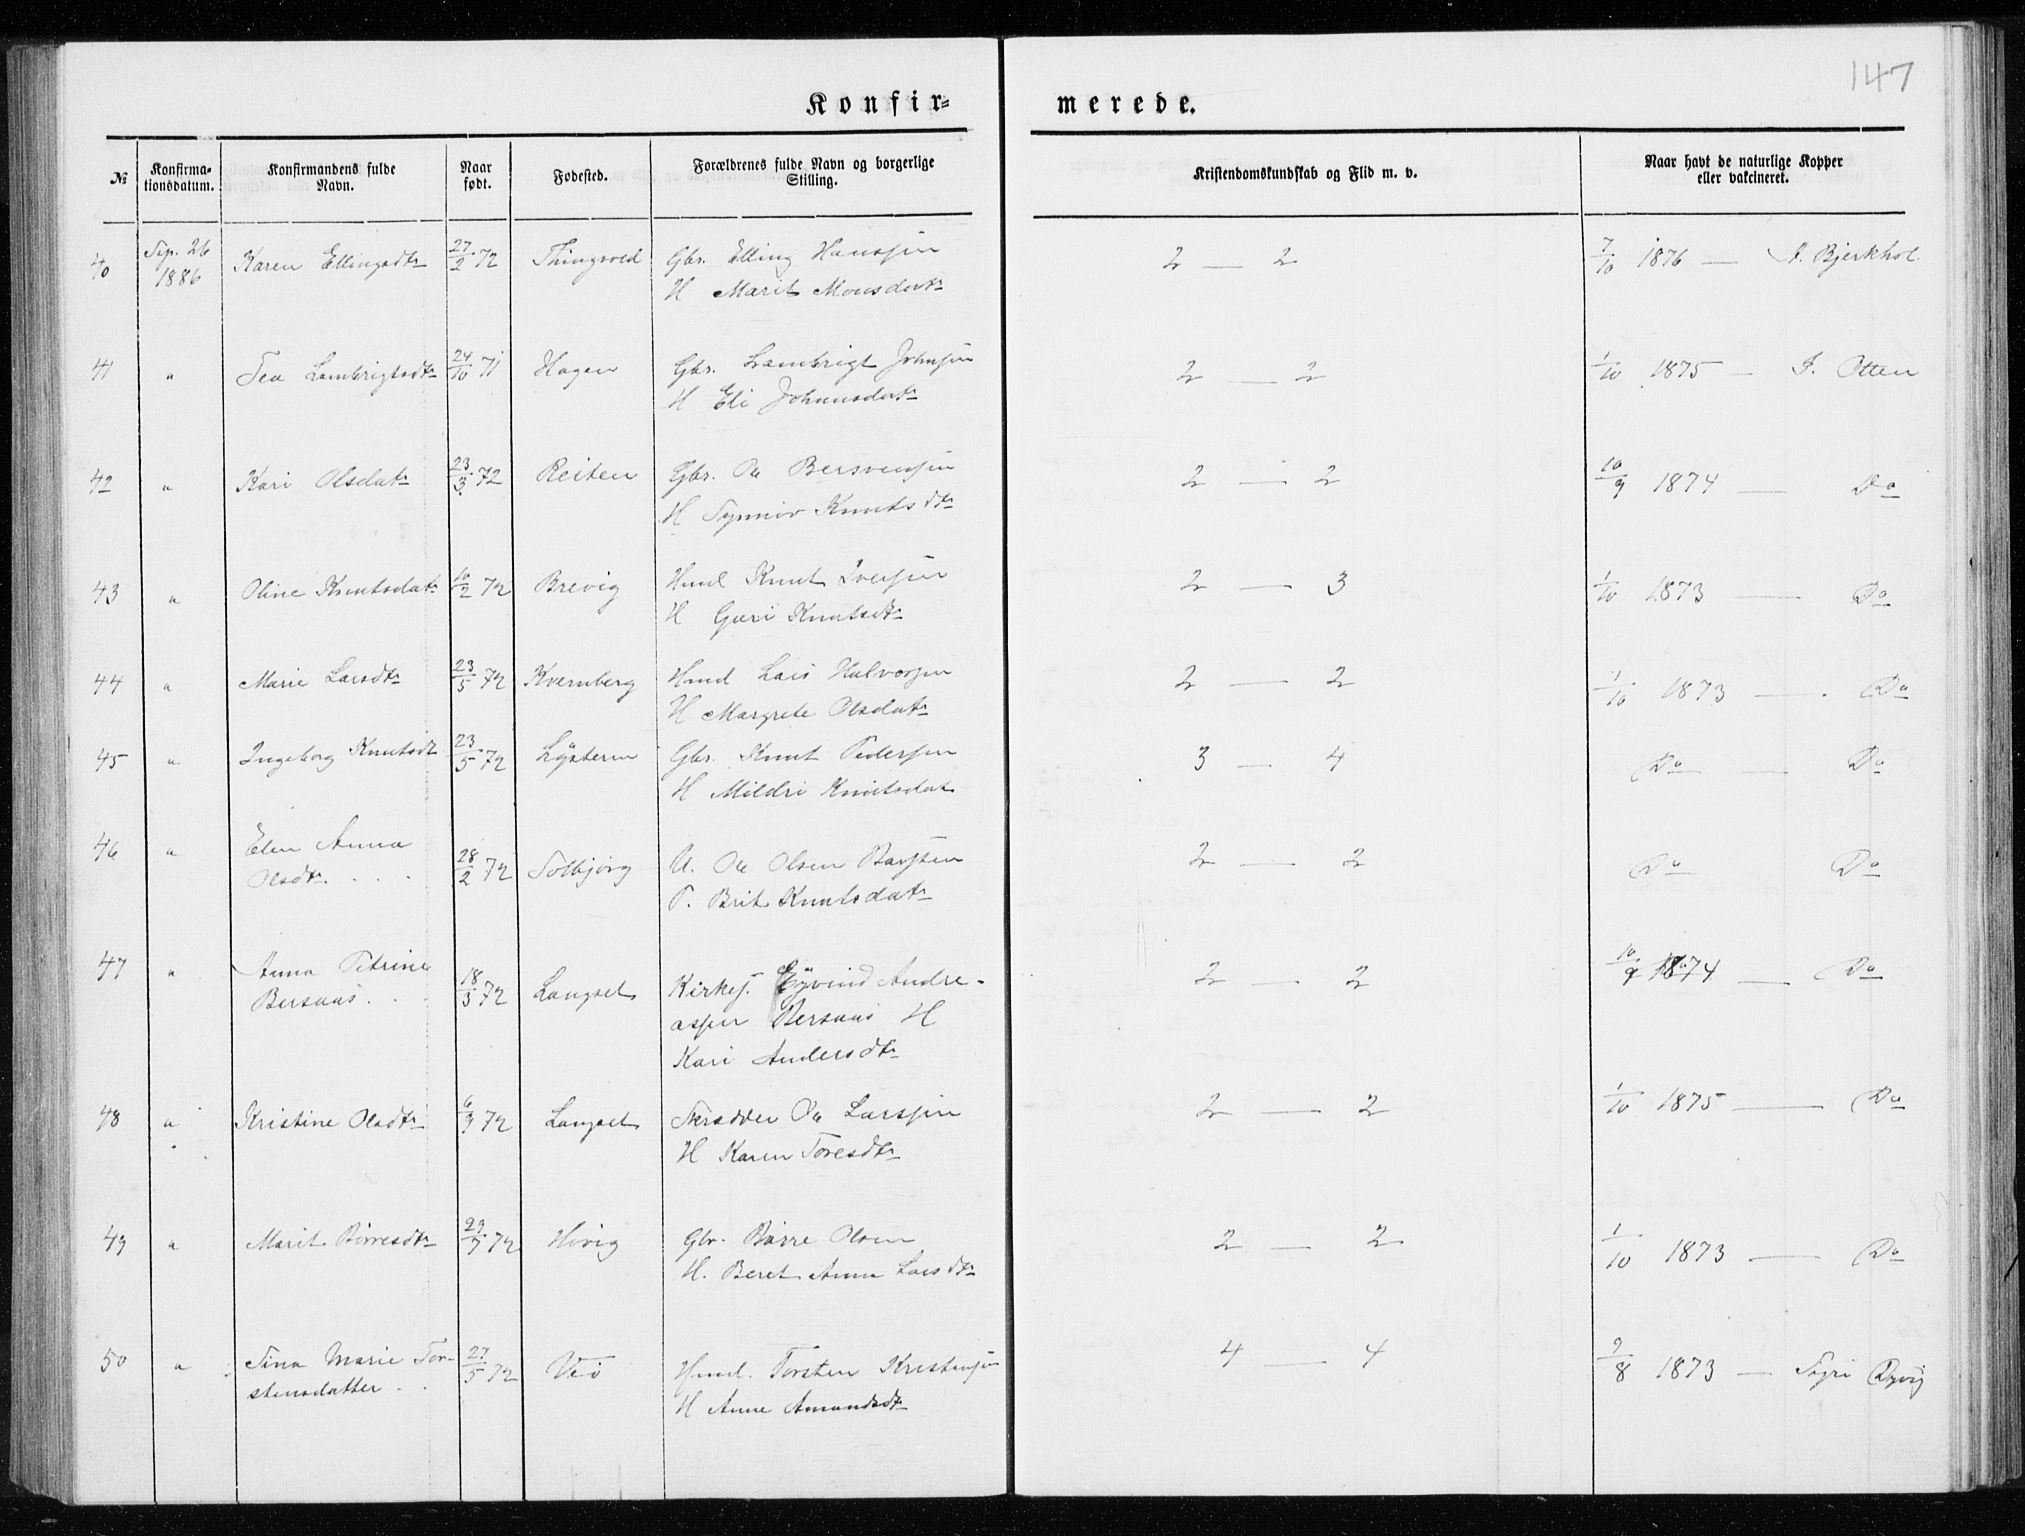 147
Konfir=
merede.
№
Konfirma-
tionsdatum.
Konfirmandens fulde
Navn.
Naar
født.
Fødested.
Forældrenes fulde Navn og borgerlige
Stilling.
Kristendomskundskab og Flid m. v.
Naar havt de naturlige Kopper
eller vakcineret.
40 Sep. 26 Karen Ellingsdtr 27/2 72 Thingvold Gbr. Elling Hanssen 2 — 2 7/10 1876 — A. Bjerkhol.
1886 H Marit Monsdatr
41 " Tea Lambrigtsdtr 24/10 71 Hagen Gbr. Lambrigt Johnsen 2 — 2 1/10 1875 — I. Otten
H Eli Johansdatr
42 " Kari Olsdatr 23/3 72 Reiten Gbr. Ole Bersvensen 2 — 2 10/9 1874 — Do
H Synnøv Knutsdtr
43 " Oline Knutsdatr 10/2 72 Brevig Hmd Knut Iversen 2 — 3 1/10 1873 — Do
H Guri Knutsdtr
44 " Marie Larsdtr 23/5 72 Kvernberg Hmd Lars Halvorsen 2 — 2 1/10 1873 — Do
H Margrete Olsdatr
45 " Ingeborg Knutsdt 23/5 72 Lysteren Gbr. Knut Pedersen 3 — 4 Do — Do
H Mildri Knutsdat
46 " Elen Anna
Olsdtr. . . . 28/2 72 Solbjørg U. Ole Olsen Barsten 2 — 2 Do Do
P. Brit Knutsdatr
47 " Anna Petrine
Bersaas . . 18/3 72 Langset Kirkes. Eyvind Andre- 2 — 2 10/9 1874 — Do
assen Bersaas H
Kari Andersdtr
48 " Kristine Olsdtr 6/3 72 Langset Skrædder Ole Larssen 2 — 2 1/10 1875 — Do
H Karen Toresdtr
49 " Marit Børresdtr 29/7 72 Høvig Gbr. Børre Olsen 2 — 2 1/10 1873 — Do
H. Beret Anna Larsdtr
50 " Tina Marie Tor-
stensdatter . . 27/5 72 Veø Hmd. Torsten Kristensen 4 — 4 9/8 1873 — Syri Dyvig
H Anne Amundsdtr